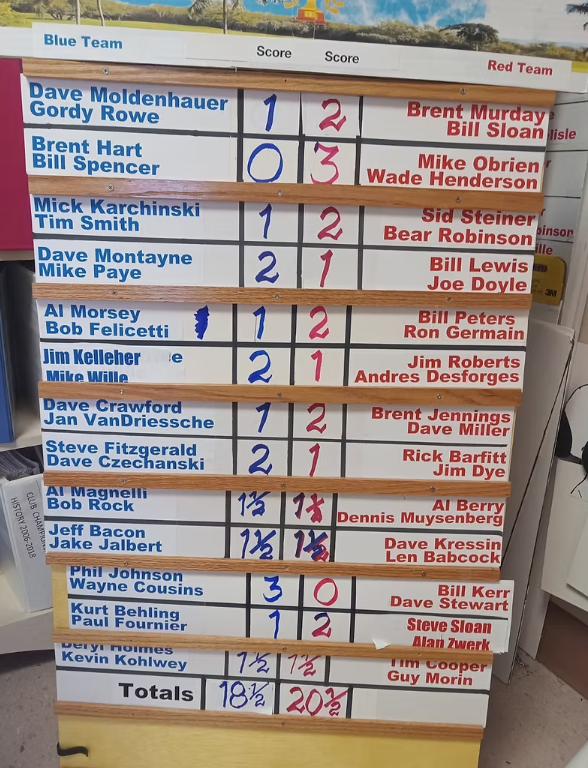 Blue Team Score Score Red Team
Dave Moldenhauer 1 2 Brent Murday
Gordy Rowe Bill Sloan
Brent Hart 0 3 Mike Obrien
Bill Spencer Wade Henderson
Mick Karchinski 1 2 Sid Steiner
Tim Smith Bear Robinson
Dave Montayne 2 1 Bill Lewis
Mike Paye Joe Doyle
Al Morsey 1 2 Bill Peters
Bob Felicetti Ron Germain
Jim Kelleher e 2 1 Jim Roberts
Mike Wille Andres Desforges
Dave Crawford 1 2 Brent Jennings
Jan VanDriessche Dave Miller
Steve Fitzgerald 2 1 Rick Barfitt
Dave Czechanski Jim Dye
Al Magnelli 1½ 1½ Al Berry
Bob Rock Dennis Muysenberg
Jeff Bacon 1½ 1½ Dave Kressin
Jake Jalbert Len Babcock
Phil Johnson 3 0 Bill Kerr
Wayne Cousins Dave Stewart
Kurt Behling 1 2 Steve Sloan
Paul Fournier Alan Zwerk
Deryl Holmes 1½ 1½ Tim Cooper
Kevin Kohlwey Guy Morin
Totals 18½ 20½
lisle
binson
ille
3M
CLUB CHAMPION
HISTORY 2006-2018